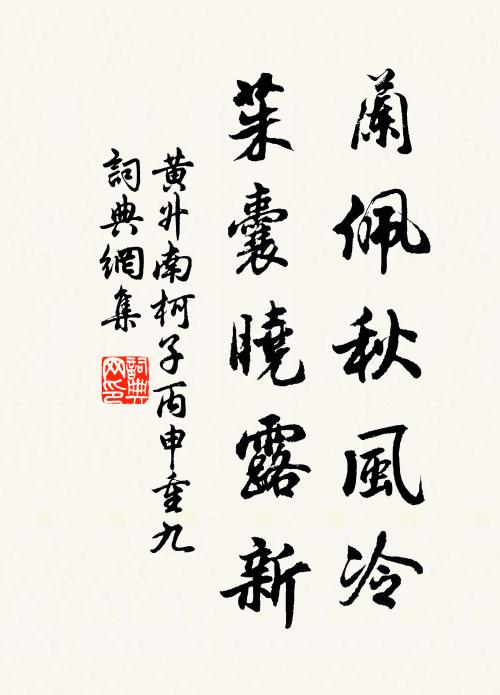 蘭佩秋風冷
茱囊曉露新
黃升南柯子丙申重九
詞典網集
詞典网印